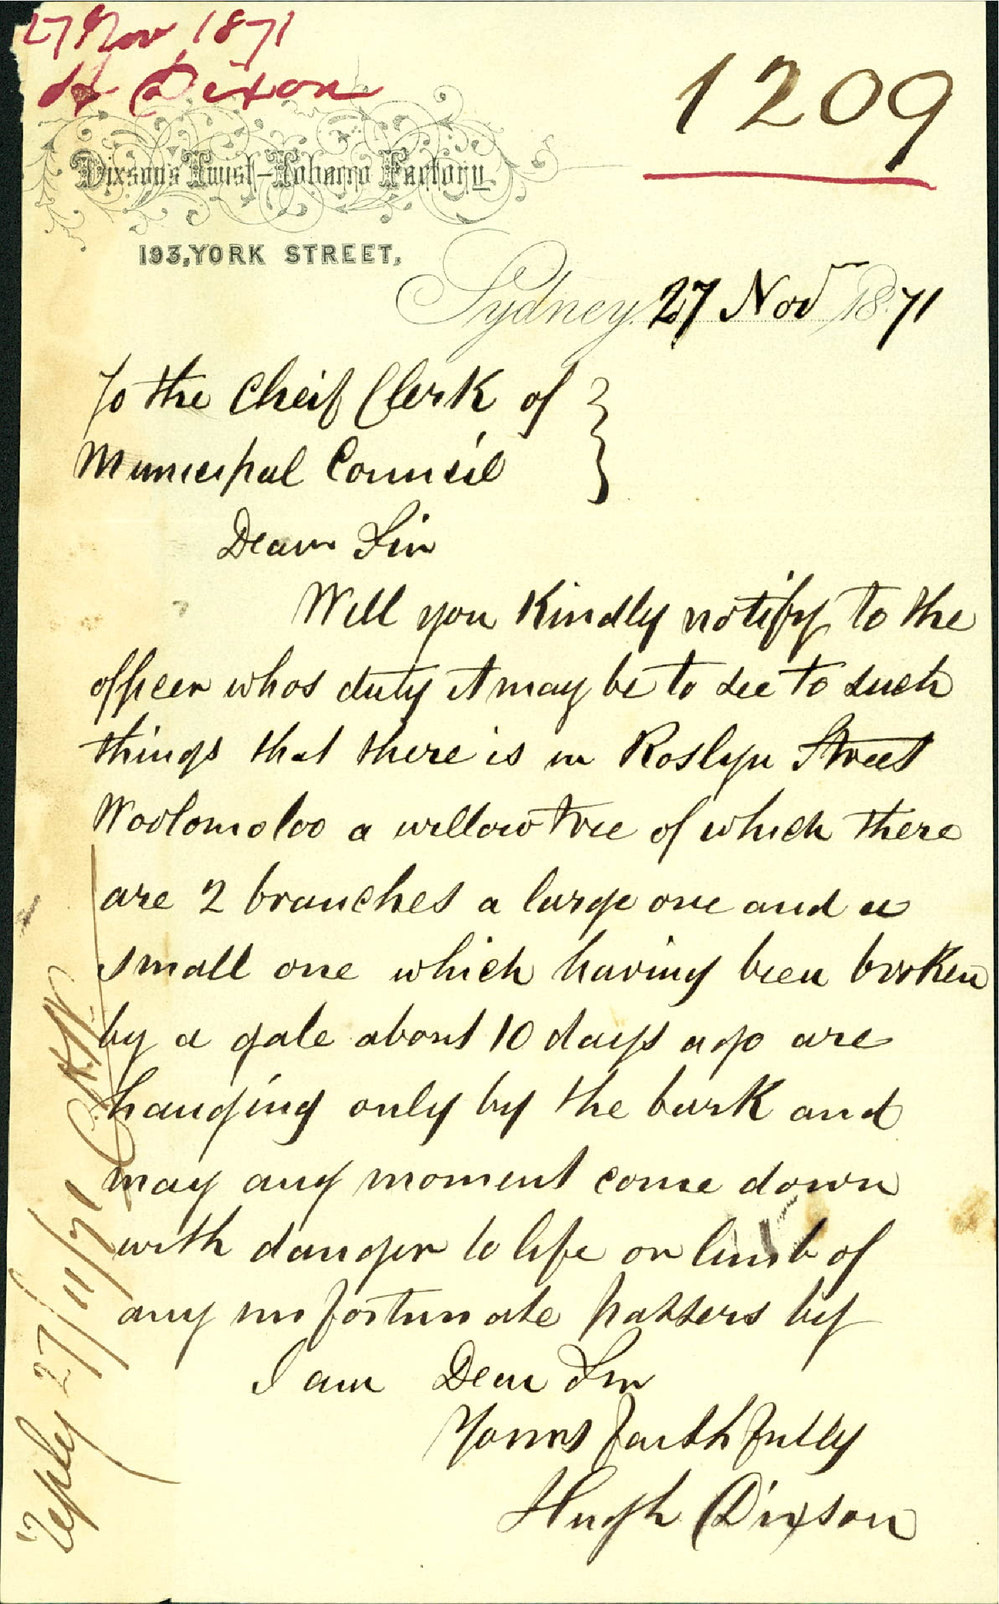 27 Nov 1871
H Dixon
1209
Dixson's Twist-Tobacco Factory
193, YORK STREET,
Sydney. 27 Nov 1871
To the Cheif Clerk of
Municipal Council
Dear Sir
Will you Kindly notify to the
officer whos duty it may be to see to such
things that there is in Roslyn Street
Woolomoloo a willow tree of which there
are 2 branches a large one and a
small one which having been broken
by a gale about 10 days ago are
hanging only by the bark and
may any moment come down
with danger to life or limb of
any unfortunate passers by
I am Dear Sir
Yours faithfully
Hugh Dixson
Reply 27/11/71